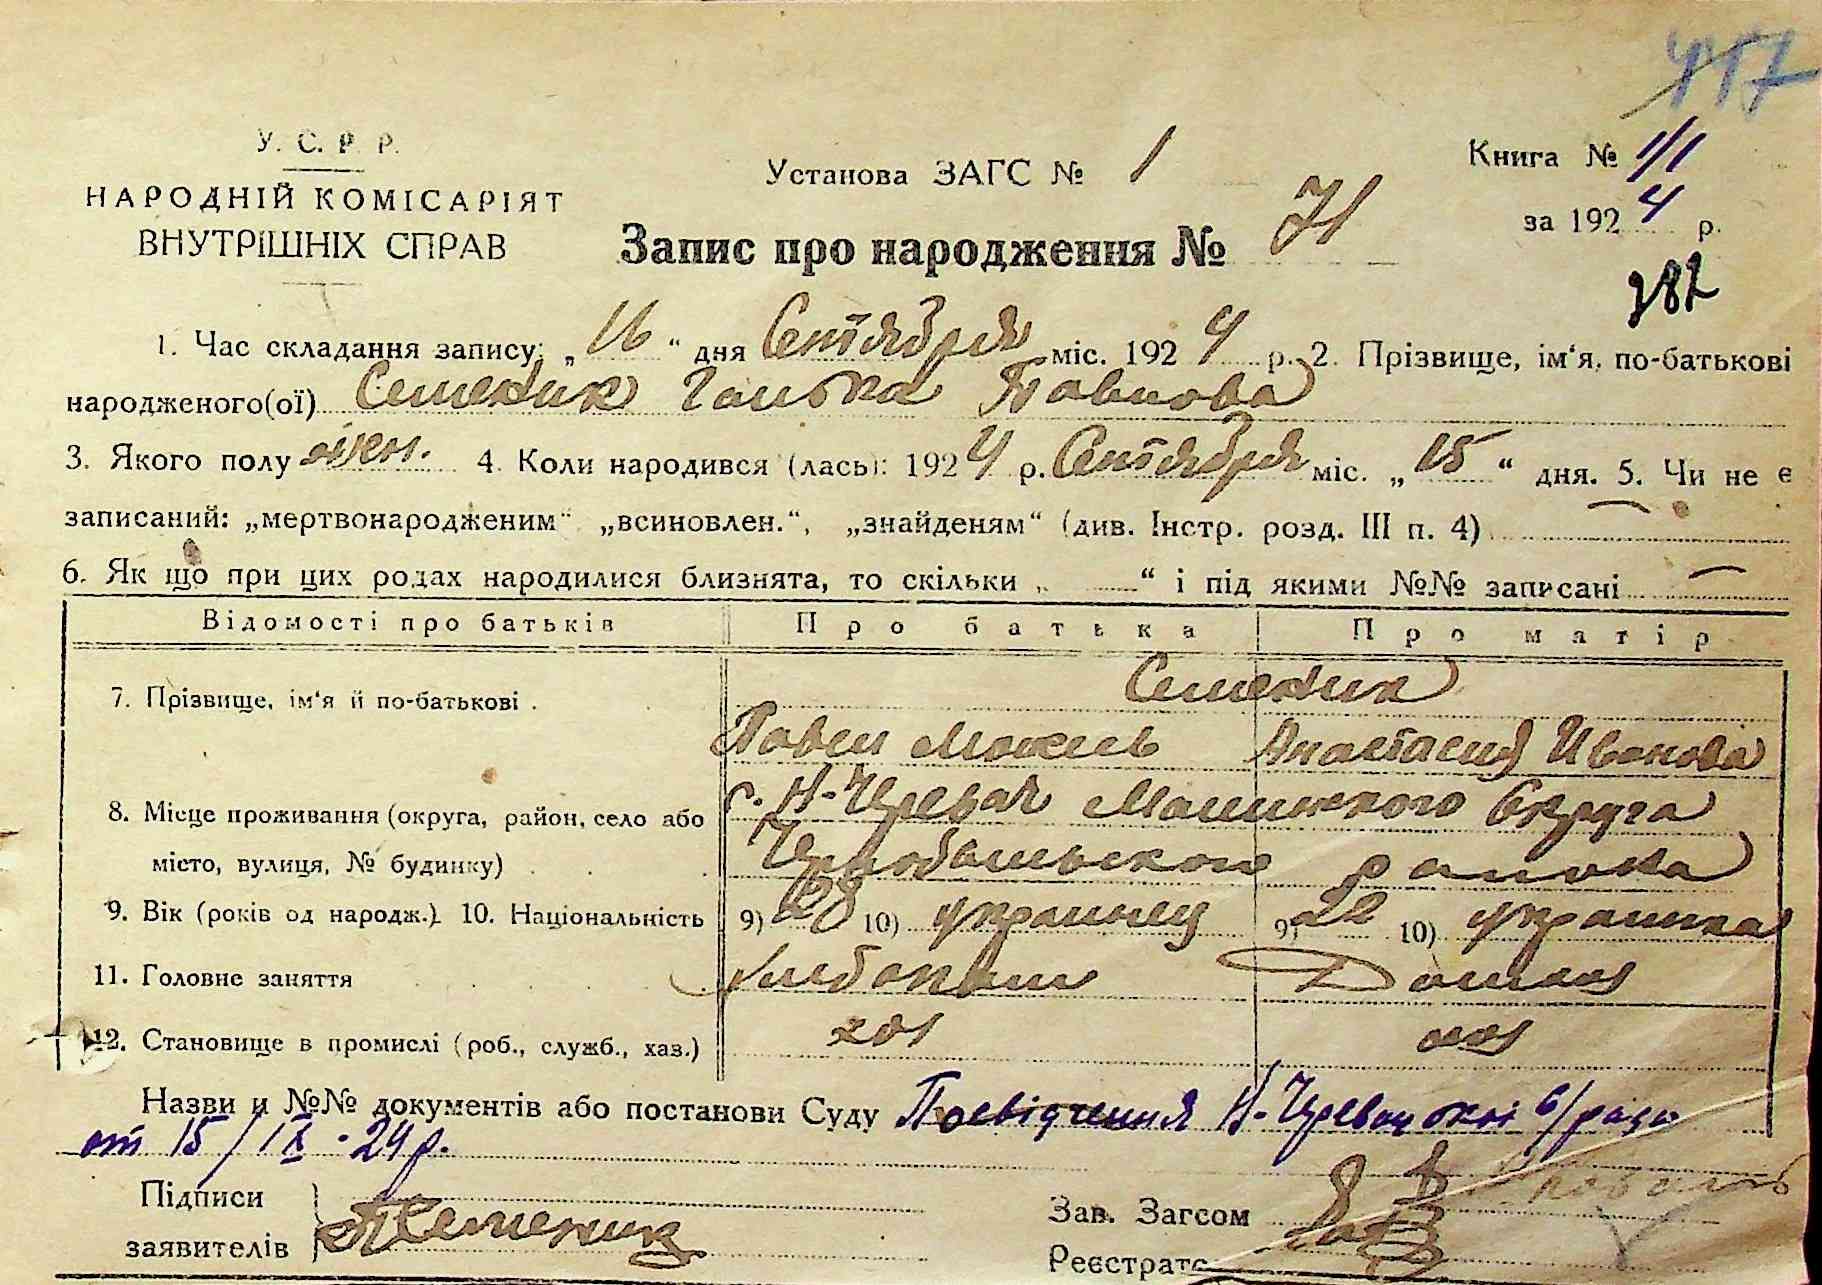 417
У. С. Р. Р.
НАРОДНІЙ КОМІСАРІЯТ
ВНУТРІШНІХ СПРАВ
Установа ЗАГС № 1
Книга № 1/1
за 1924 р.
Запис про народження № 71
282
1. Час складання запису: „16“ дня Сентября міс. 1924 р. 2. Прізвище, ім‘я, по-батькові
народженого(ої) Семеник Ганька Павлова
3. Якого полу жен. 4. Коли народився (лась): 1924 р. Сентября міс. „15“ дня. 5. Чи не є
записаний: „мертвонародженим“ „всиновлен.“, „знайденям“ (див. Інстр. розд. III п. 4) —
6. Як що при цих родах народилися близнята, то скільки „ “ і під якими №№ записані —
Відомості про батьків Про батька Про матір
7. Прізвище, ім‘я й по-батькові . Семеник
Павел Анастасия Иванова
8. Місце проживання (округа, район, село або с. Н-Черевач Малинского Округа
місто, вулиця, № будинку) . . . Чернобыльского района
9. Вік (років од народж.). 10. Національність 9) 28 10) украинец 9) 22 10) украинка
11. Головне заняття хлебопаш Домаш
12. Становище в промислі (роб., служб., хаз.) хоз
Назви и №№ документів або постанови Суду Посвідчення Н-Черевацької с/ради
от 15/IX-24 р.
Підписи
заявителів Семеник
Зав. Загсом
Реєстрато